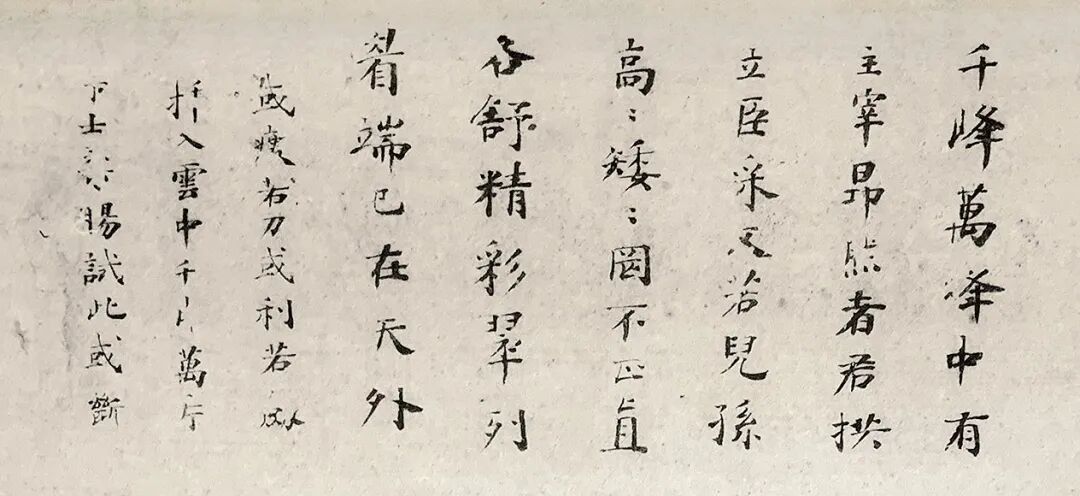 千峰萬峰中有
主宰昂然者君拱
立臣采又若兒孫
高〻矮〻罔不正直
各舒精彩翠列
眉端已在天外
或瘦若刀或利若劍
插入雲中千片萬片
下士腸試此或斷